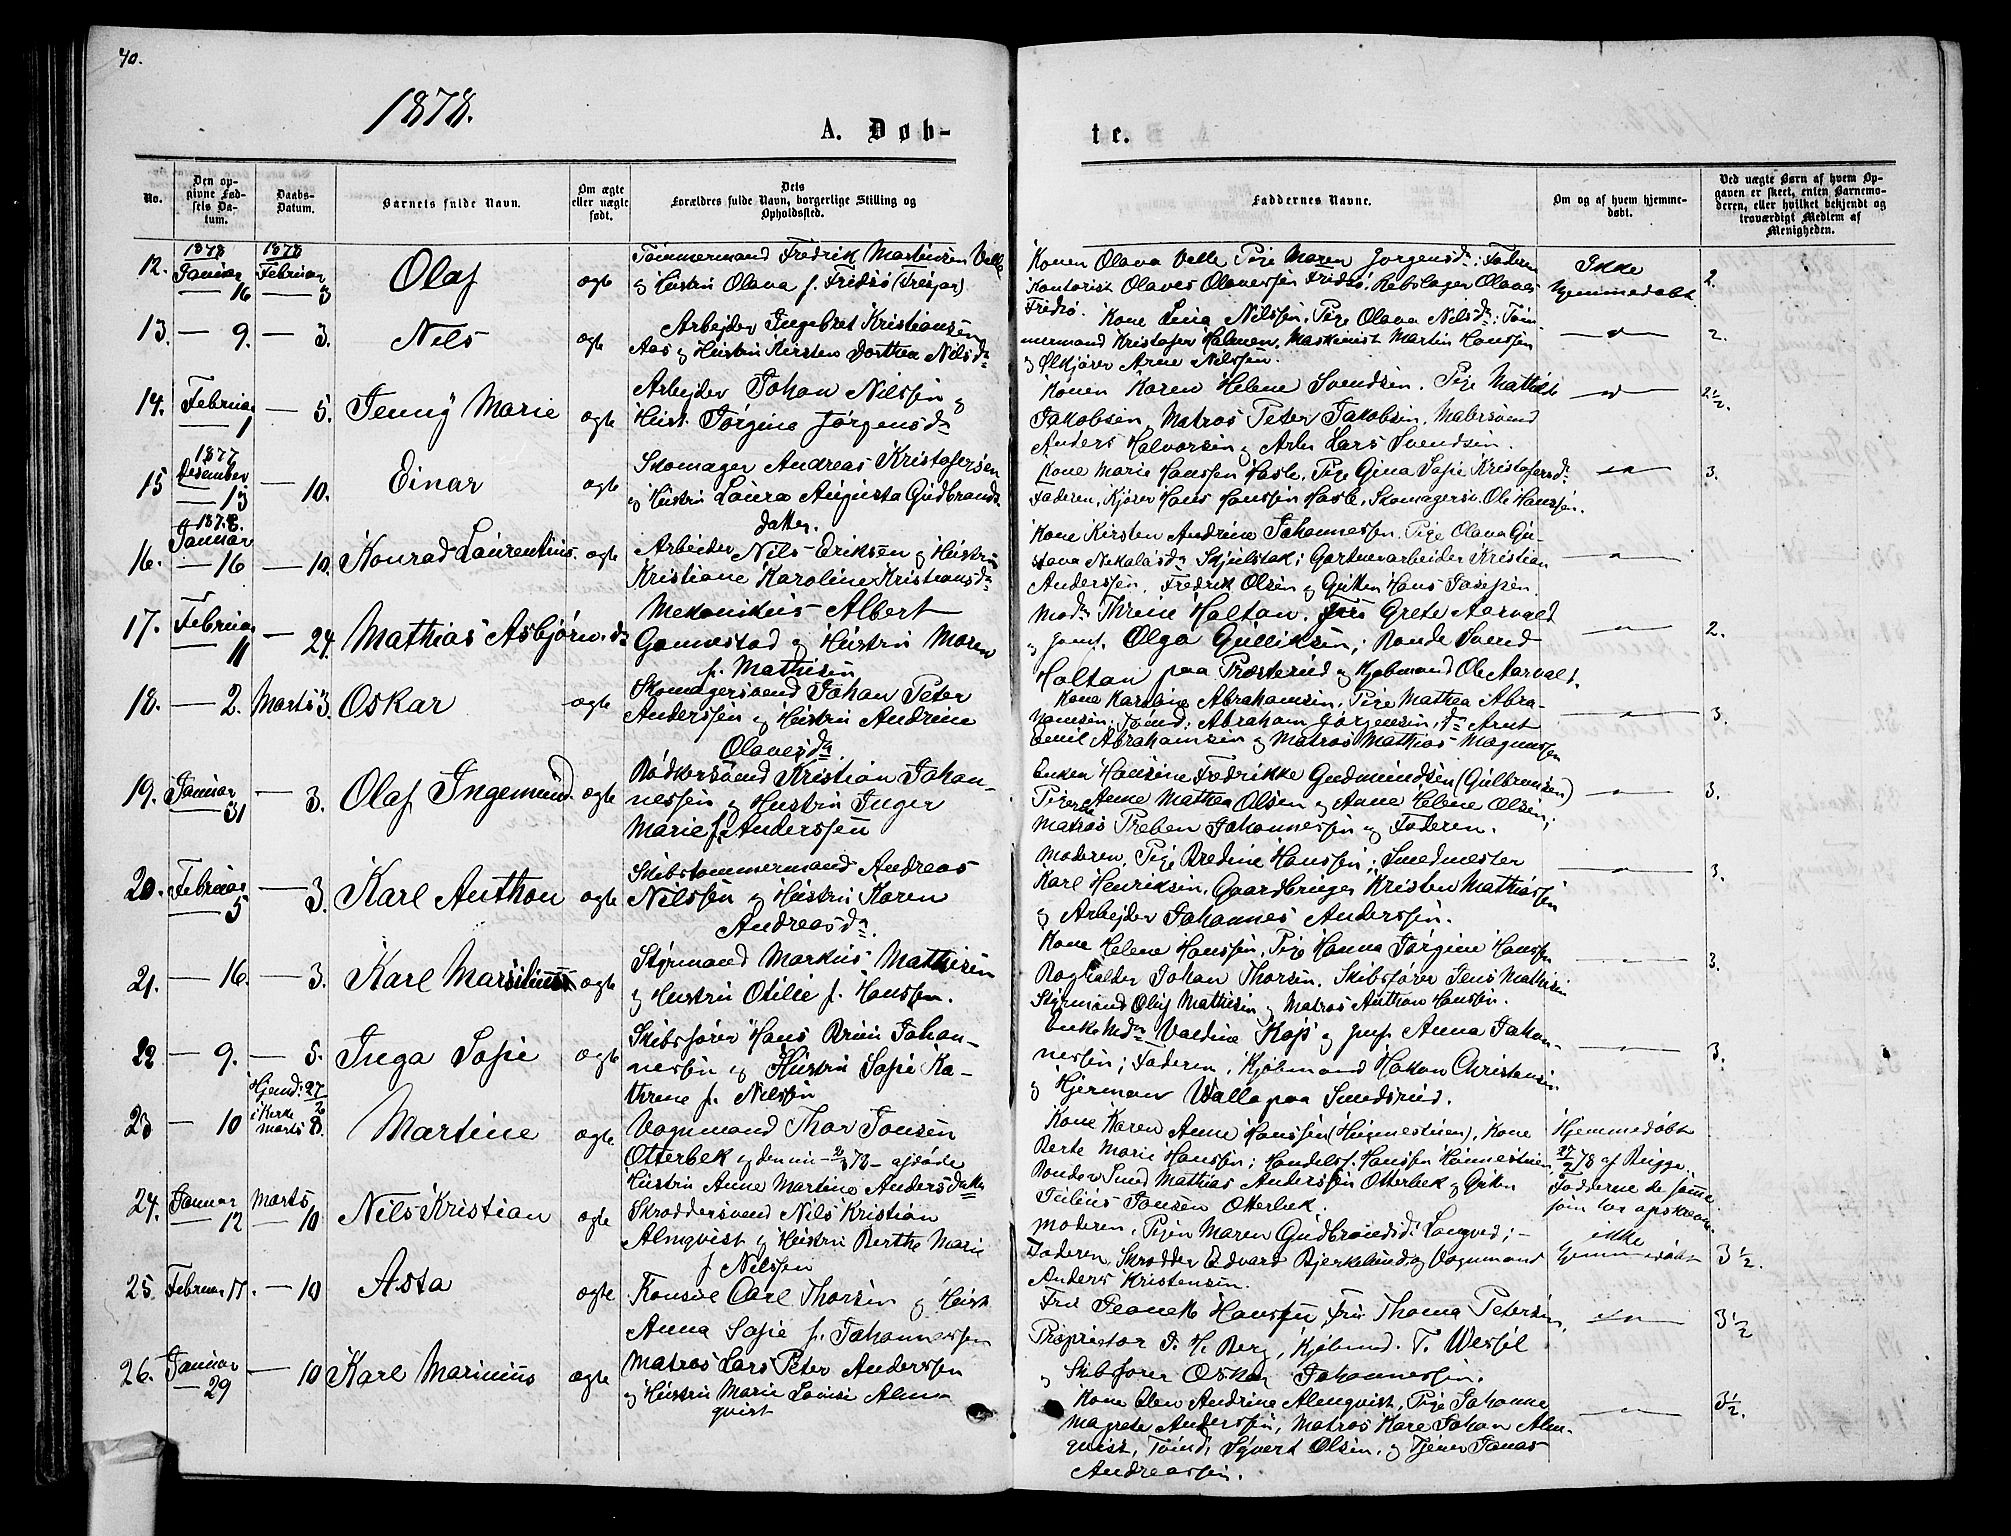 40.
1878.
A. Døb-
te.
No.
Den op-
givne Fød-
sels Da-
tum.
Daabs-
Datum.
Barnets fulde Navn.
Om ægte
eller uægte
født.
Dets
Forældres fulde Navn, borgerlige Stilling og
Opholdssted.
Faddernes Navne.
Om og af hvem hjemme-
døbt.
Ved uægte Børn af hvem Op-
gaven er skeet, enten Barnemo-
deren, eller hvilket bekjendt og
troværdigt Medlem af
Menigheden.
12.
1878
Januar
16
1878
Februar
3
Olaf
ægte
Tømmermand Fredrik Martinsen Velle
og Hustru Olava f. Fridsø
Konen Olava Velle Pige Maren Jørgensdr; Faderen
Kontorist Olaves Olavessen Fridsø, Rebslager Olaves
Fridsø.
Ikke
hjemmedøbt
2.
13.
— 9.
— 3.
Nils
ægte
Arbejder Ingebret Kristiansen
Aas og Hustru Kirsten Dorthea Nilsdr
Kone Lina Nilssen, Pige Olava Nilsdr; Tøm-
mermand Kristofer Holmen, Maskinist Martin Hanssen
og Ølkjører Arne Nilssen.
2.
14.
Februar
1
— 5.
Jenny Marie
ægte
Arbejder Johan Nilssen og
Hust. Jørgine Jørgensdr
Konen Karen Helene Svendsen. Pige Mathilde
Jakobsen, Matros Peter Jakobsen, Malersvend
Anders Halvorsen og Arb. Lars Svendsen.
2½.
15
1877
Desember
13
— 10.
Einar
ægte
Skomager Andreas Kristofersen
og Hustru Laura Augusta Gudbrands-
datter.
Kone Marie Hanssen Hasle, Pige Gina Sofie Kristofersdr
Faderen, Kjører Hans Hanssen Hasle, Skomagersv. Ole Hanssen.
3.
16.
1878.
Januar
— 16
— 10.
Konrad Laurentius
ægte
Arbeider Nils Eriksen og Hustru
Kristiane Karoline Kristiansdr
Kone Kirsten Andrine Johannessen. Pige Olava Gu-
stava Nikolaisdr Skjelstak; Gartnerarbeider Kristian
Anderssen, Fredrik Olsen og Gutten Hans Josefsen.
17.
Februar
11
— 24.
Mathias Asbjørn
Mekanikus Albert
Gannestad og Hustru Maren
f. Mathisen
Madm Thrine Holtan. Frk Grete Aarvald
og Jomf. Olga Gulliksen; Bonde Svend
Holtan paa Præsterud og Kjøbmand Ole Aarvald.
2.
18.
— 2.
Marts 3.
Oskar
ægte
Skomagersvend Johan Peter
Anderssen og Hustru Andrine
Olavesdr
Kone Karoline Abrahamsen, Pige Mathea Abra-
hamsen; Tømd. Abraham Jørgensen, do Arnt
Emil Abrahamsen og Matros Mathias Magnussen
3.
19.
Januar
31
— 3.
Olaf Ingemund
ægte
Bødkersvend Kristian Johan-
nessen og Hustru Inger
Marie f. Anderssen
Enken Hansine Fredrikke Gudmundsen (Gulbransen)
Pigerne Anne Mathea Olsen og Anne Helene Olsen;
Matros Preben Johannessen og Faderen.
3.
20.
Februar
5
— 3.
Karl Anthon
ægte
Skibstømmermand Andreas
Nilssen og Hustru Karen
Andreasdr
Moderen, Pige Bredine Hanssen; Smedmester
Karl Henriksen, Gaardbruger Kristen Mathiassen
og Arbejder Johannes Anderssen.
3.
21.
— 16.
— 3.
Karl Marsilius
ægte
Styrmand Markus Mathisen
og Hustru Otilie f. Hanssen.
Kone Helene Hanssen, Pige Hanna Jørgine Hanssen
Bogholder Johan Thorsen. Skibsfører Jens Mathisen
Styrmand Oluf Mathisen og Matros Anthon Hanssen.
3.
22
— 9.
— 5.
Inga Sofie
ægte
Skibsfører Hans Bruun Johan-
nessen og Hustru Sofie Ka-
thrine f. Nilssen
Enkemdm Valdine Kop og Jmfr Anna Johan-
nessen; Faderen, Kjøbmand Hakon Christensen
og Hjerman Valla paa Smedsrud.
3.
23
— 10
Hjemd: 27/2
i Kirke
Marts 8.
Martine
ægte
Vognmand Thor Jonsen
Otterbek og den nu afdøde
Hustru Anne Martine Andersdatter
Kone Karen Anne Hanssen, Kone
Berte Marie Hanssen; Handelsf. Hanssen
Bonden Smed Mathias Anderssen Otterbek og Gutten
Julius Jonsen Otterbek.
Hjemmedøbt
27/2 78 af Bugge.
Fadderne de samme
som for opskrevne
24.
Januar
— 12
Marts
— 10
Nils Kristian
ægte
Skræddersvend Nils Kristian
Almqvist og Hustru Berthe Marie
f Nilssen
Moderen, Pigen Maren Gudbrandsdr Langved;
Faderen, Skrædder Edvard Bjerkelund og Vognmand
Anders Kristensen.
ikke
hjemmedøbt
3½.
25.
Februar 17.
— 10
Asta
ægte
Konsul Carl Thorsen og Hust.
Anna Sofie f. Johannessen
Fru Jeanette Hanssen, Fru Thoma Petersen,
Proprietær J. H. Berg, Kjøbmd. T. Wesfel
og Skibsfører Oskar Johannessen.
3½
26.
Januar
— 29
— 10
Karl Marinius
ægte
Matros Lars Peter Anderssen
og Hustru Marie Lovise Alm-
qvist
Kone Elen Andrine Almqvist, Pige Johanne
Magrete Anderssen, Matros Karl Johan Alm-
qvist, Tømd. Syvert Olsen, og Tjener Jonas
Andreassen.
3½.